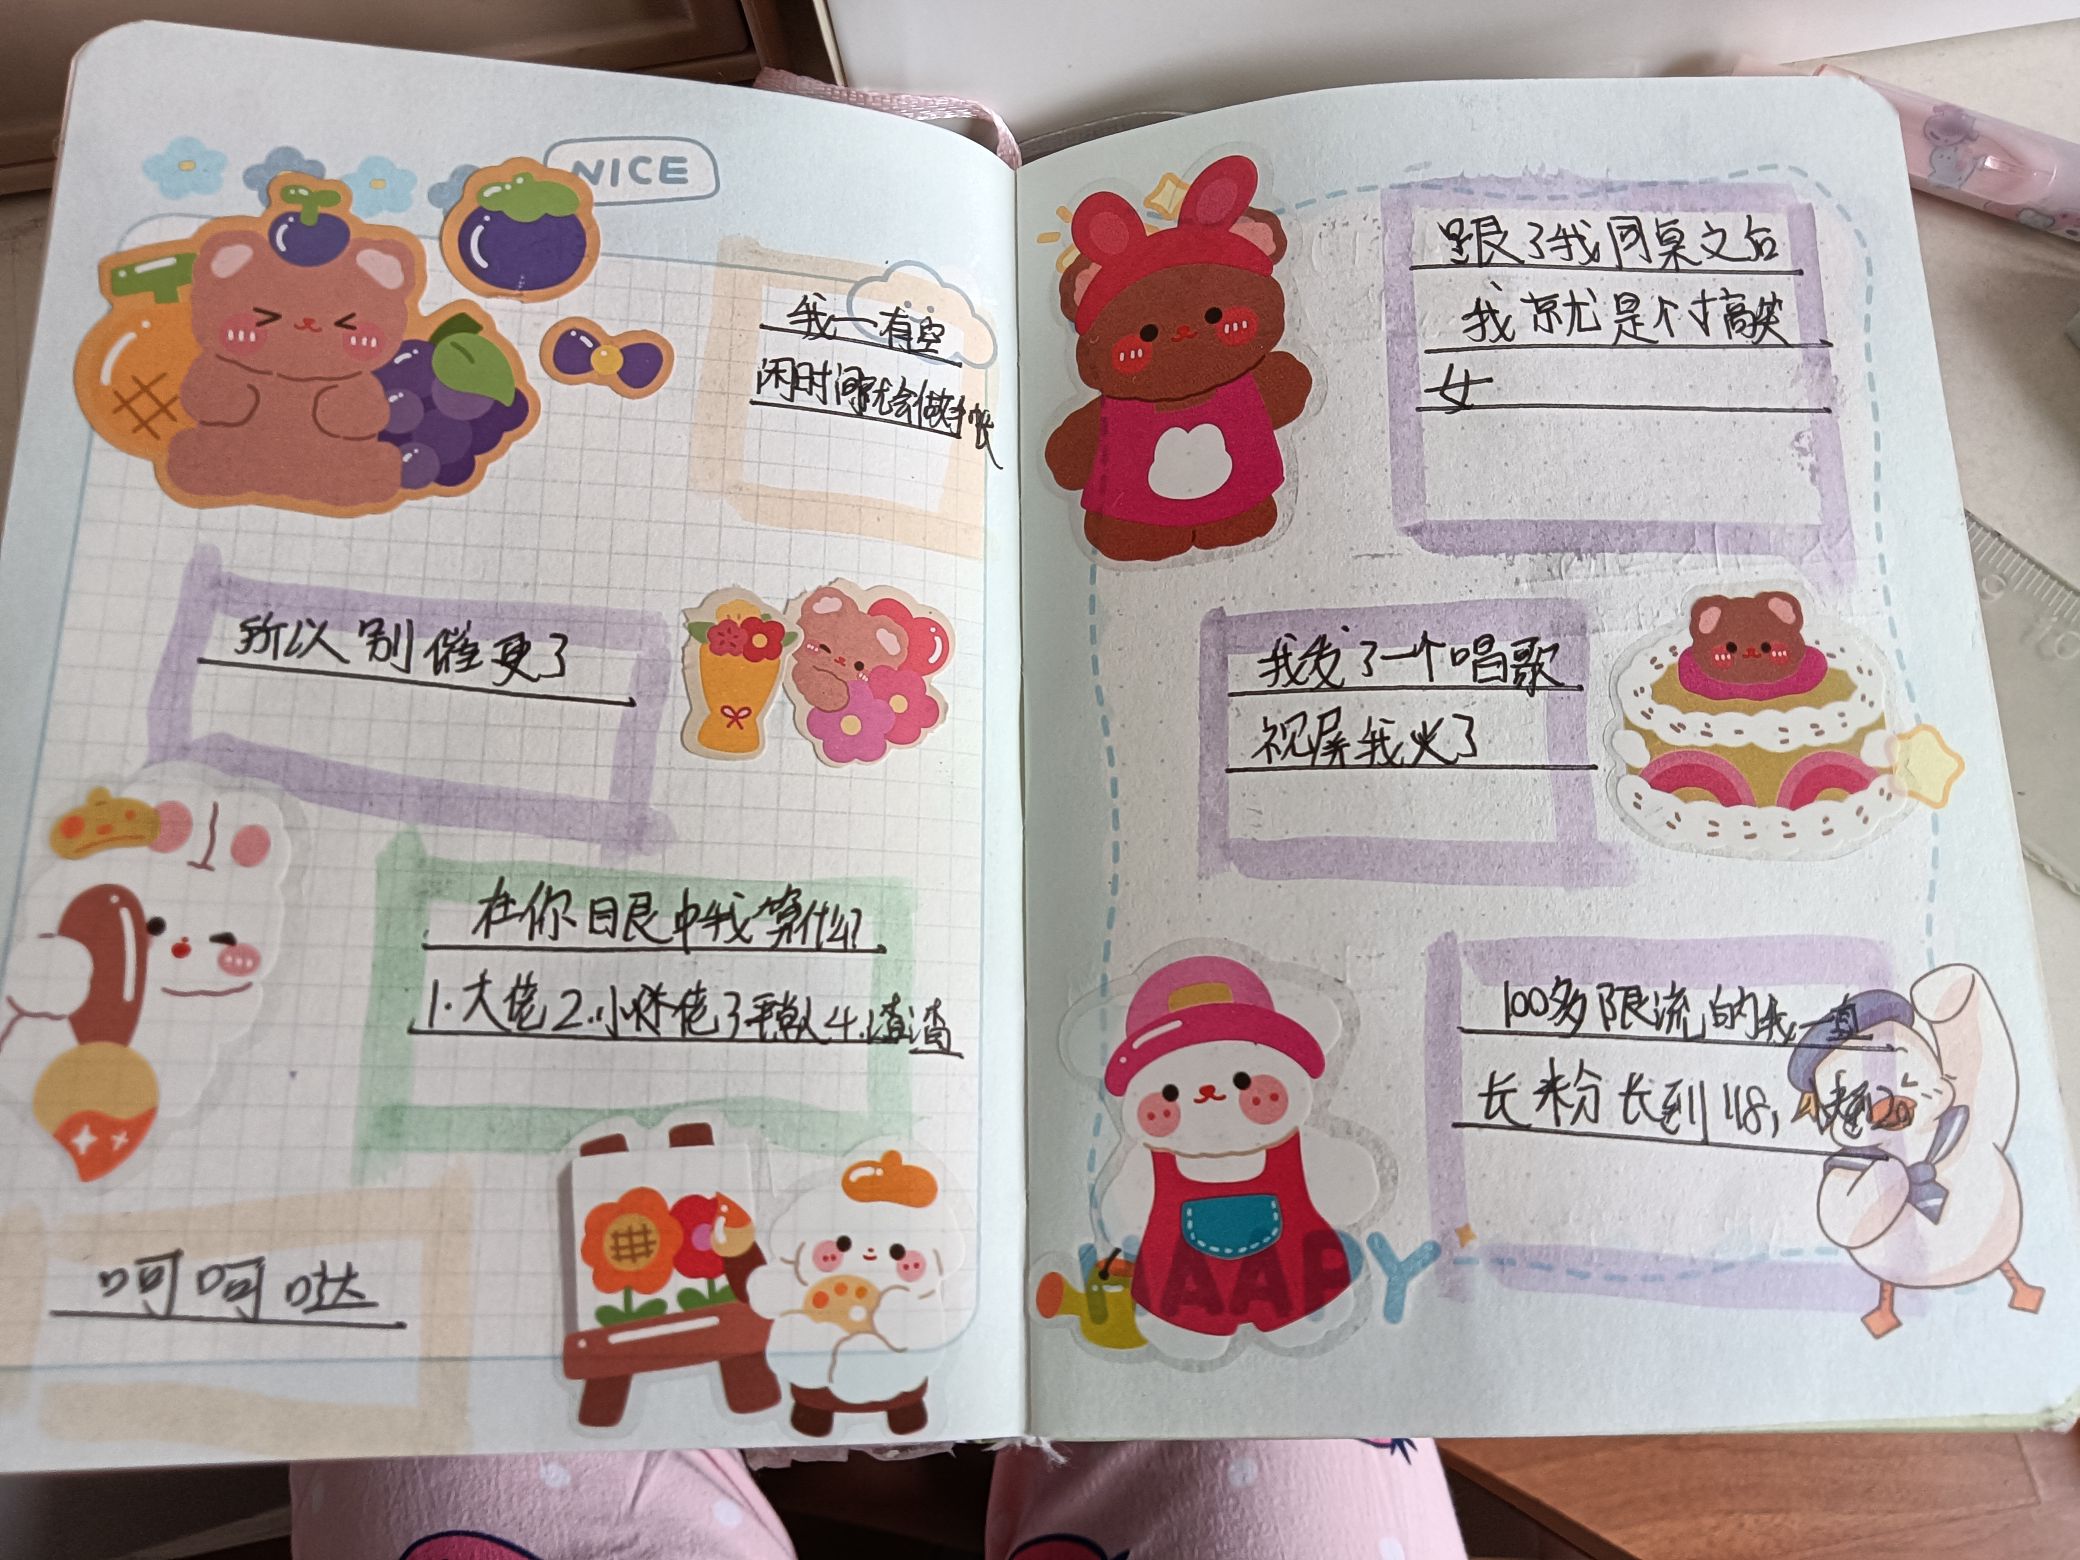 NICE
我一有空
闲时间就会做手帐
所以别催更了
在你眼中我算什么
1.大佬2.小佬3手残人4.渣渣
呵呵哒
跟了我同桌之后
我就是个搞笑
女
我发了一个唱歌
视屏我火了
100多限流的我一直
长粉长到118,
HAAPY